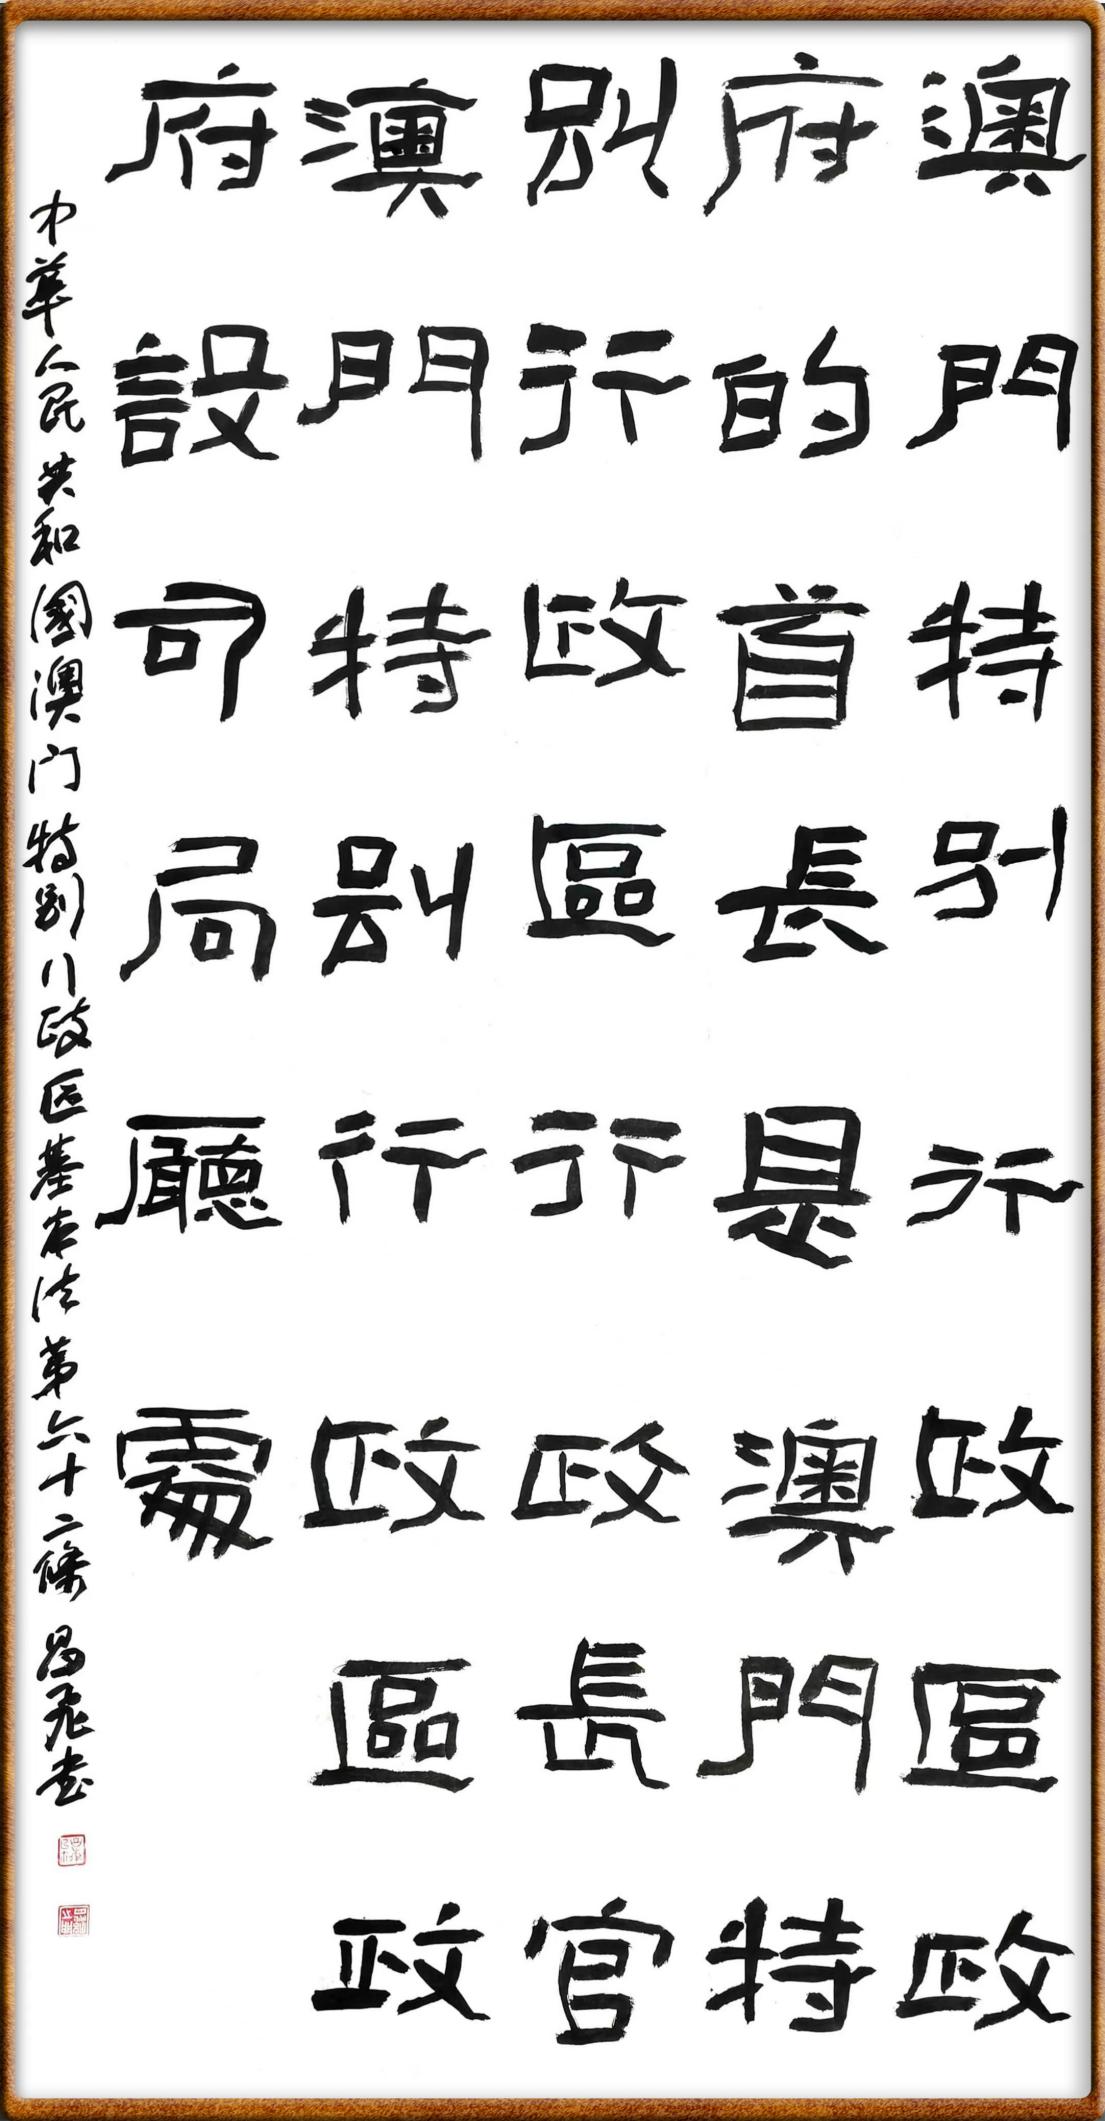 澳門特別行政區政
府的首長是澳門特
別行政區行政長官
澳門特別行政區政
府設司局廳處
中華人民共和國澳门特别行政区基本法第六十二條 昌飛书